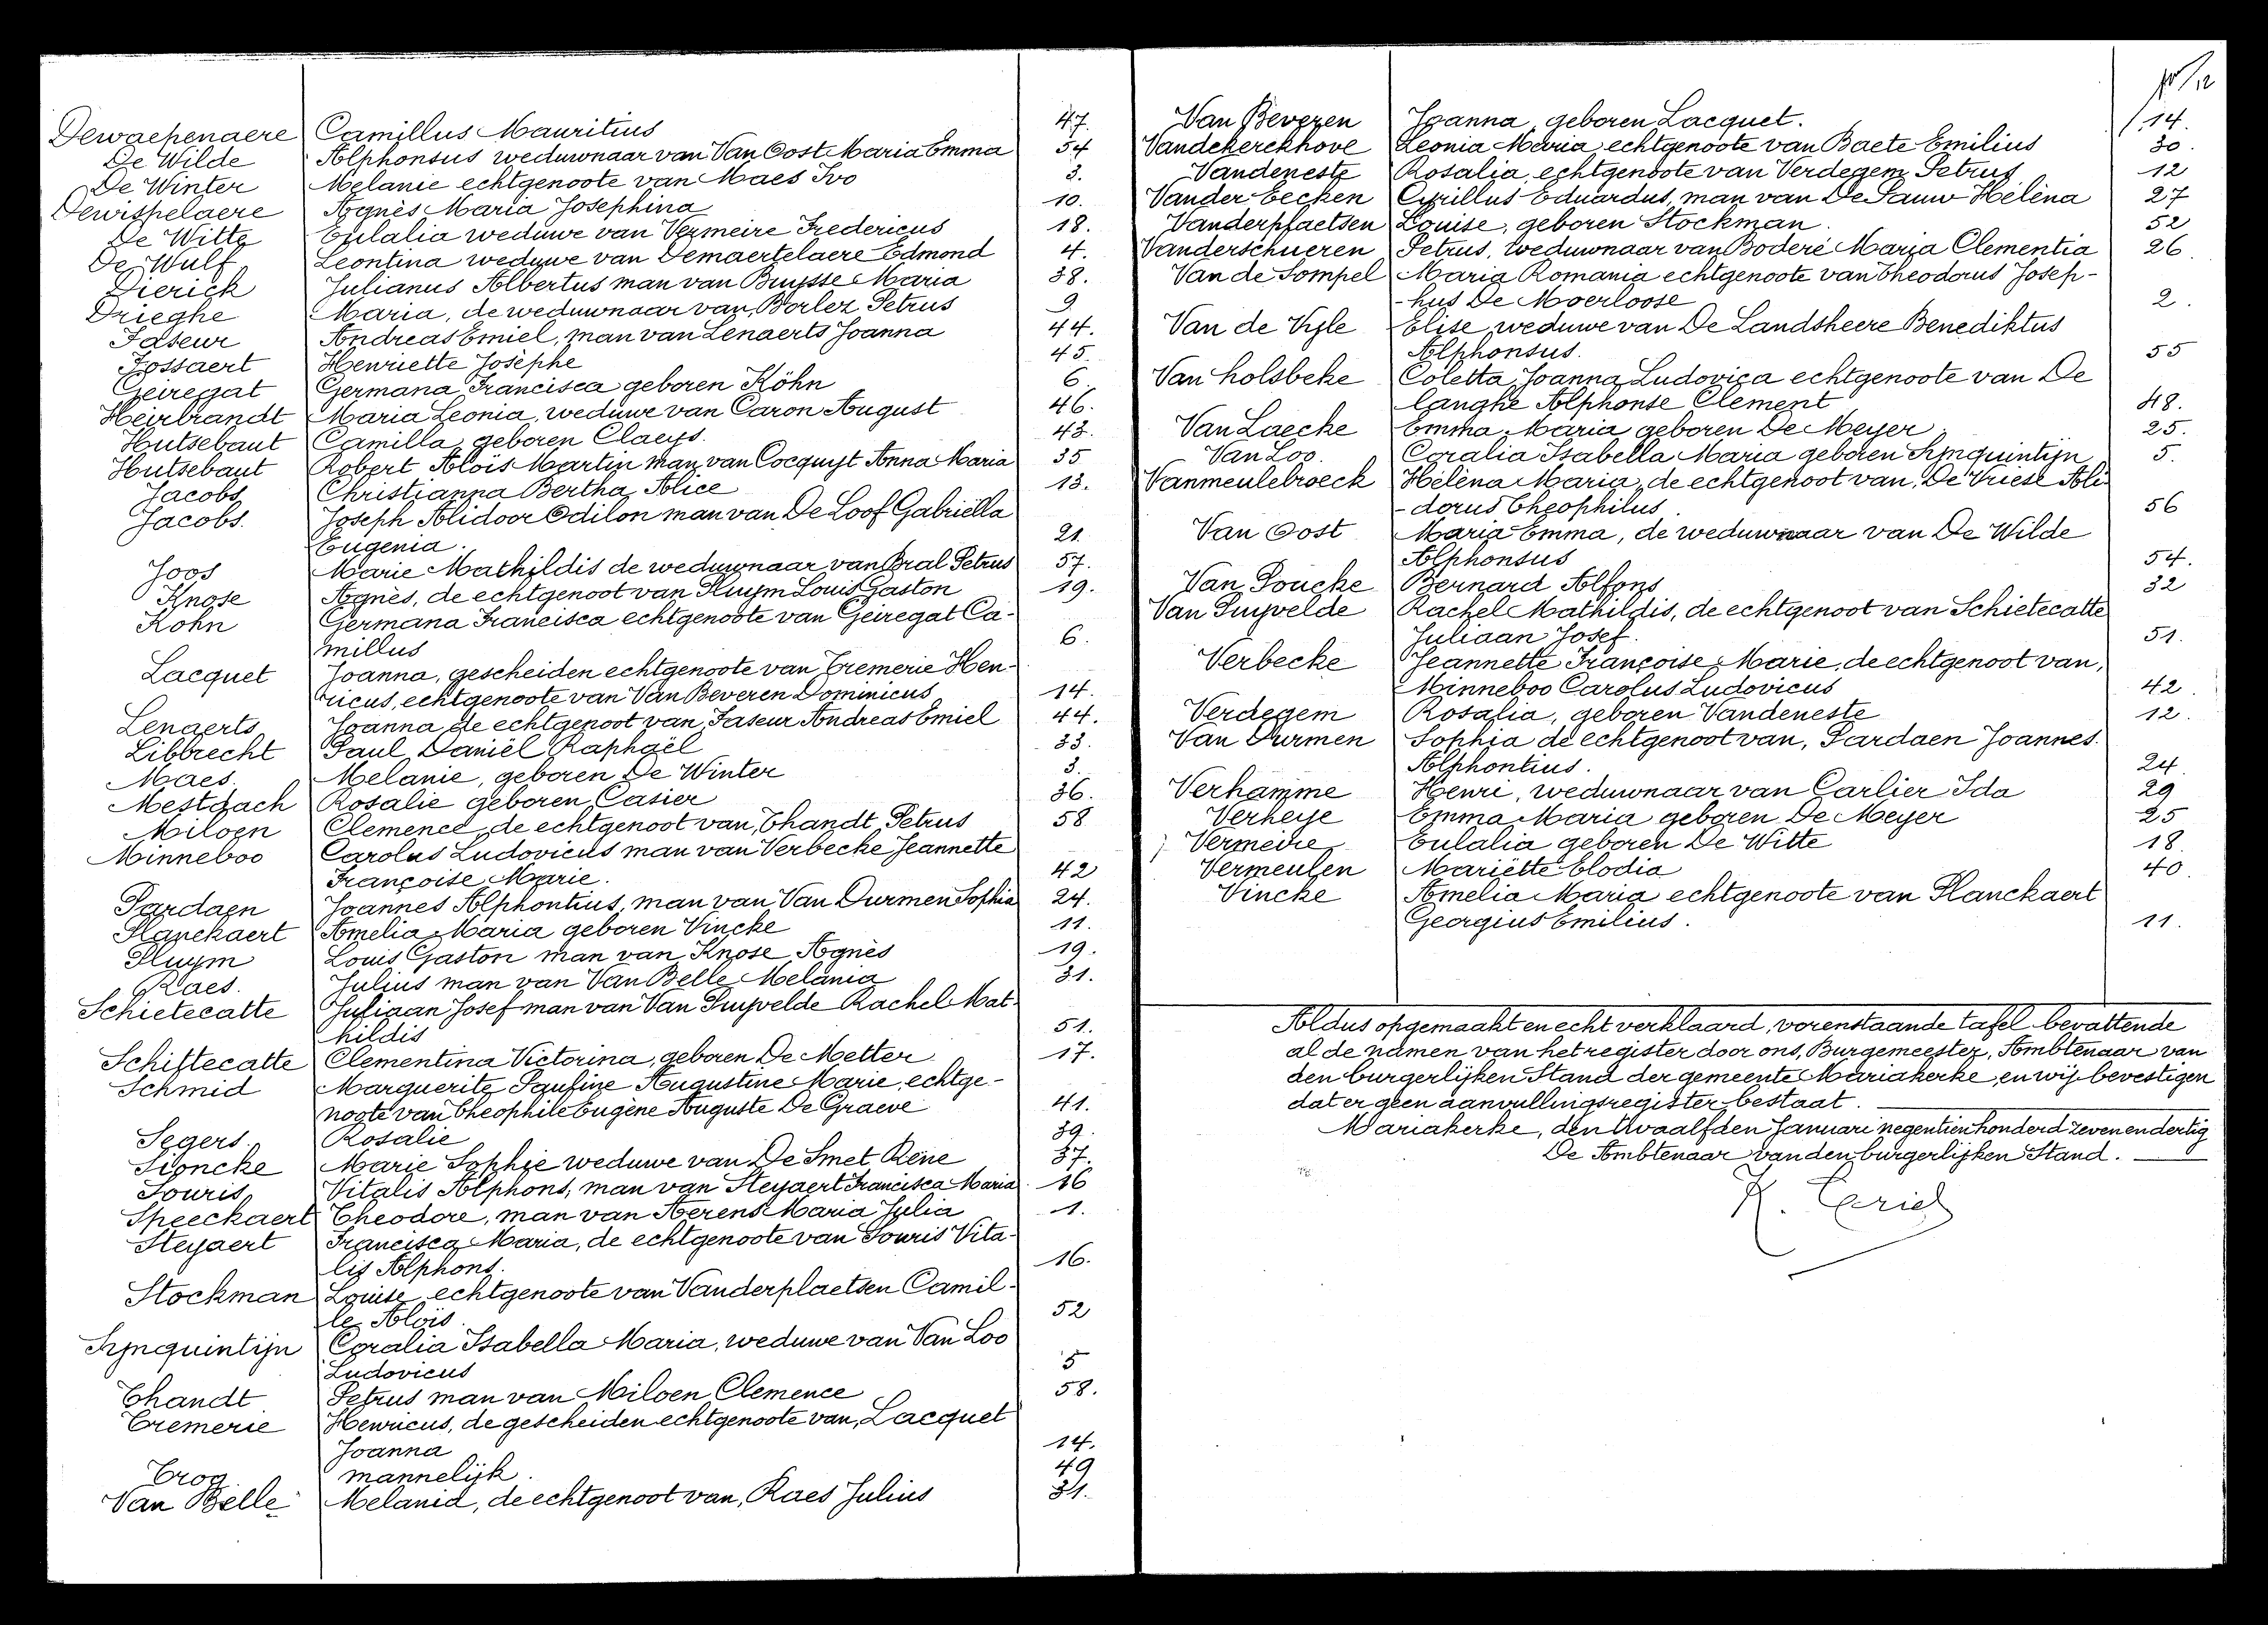 Dewaepenaere Camillus Mauritius 47.
De Wilde Alphonsus weduwnaar van Van Oost Maria Emma 54
De Winter Melanie echtgenoote van Maes Ivo 3.
Dewispelaere Agnès Maria Josephina 10.
De Witte Eulalia weduwe van Vermeire Fredericus 18.
De Wulf Leontina weduwe van Demaertelaere Edmond 4.
Dierick Julianus Albertus man van Buysse Maria 38.
Drieghe Maria, de weduwnaar van, Borlez Petrus 9
Faseur Andreas Emiel, man van Lenaerts Joanna 44.
Fossaert Henriette Josèphe 45.
Geiregat Germana Francisca geboren Köhn 6.
Heirbrandt Maria Leonia, weduwe van Caron August 46.
Hutsebaut Camilla, geboren Claeys. 43.
Hutsebaut Robert Aloïs Martin man van Cocquyt Anna Maria 35
Jacobs Christianna Bertha Alice 13.
Jacobs. Joseph Alidoor Odilon man van De Loof Gabriëlla
Eugenia. 21.
Joos Marie Mathildis de weduwnaar van Bral Petrus 57.
Knose Agnès, de echtgenoot van Pluym Louis Gaston 19.
Kohn Germana Francisca echtgenoote van Geiregat Ca-
millus 6.
Lacquet Joanna, gescheiden echtgenoote van Tremerie Hen-
ricus, echtgenoote van Van Beveren Dominicus 14.
Lenaerts Joanna de echtgenoot van, Faseur Andreas Emiel 44.
Libbrecht Paul Daniël Raphaël 33.
Maes. Melanie, geboren De Winter 3.
Mestdach Rosalie geboren Casier 36.
Miloen Clemence, de echtgenoot van, Thandt Petrus 58
Minneboo Carolus Ludovicus man van Verbecke Jeannette
Françoise Marie. 42
Pardaen Joannes Alphontius, man van Van Durmen Sophia 24.
Planckaert Amelia Maria geboren Vincke 11.
Pluym Louis Gaston man van Knose Agnès 19.
Raes. Julius man van Van Belle Melania 31.
Schietecatte Juliaan Josef man van Van Puyvelde Rachel Mat-
hildis 51.
Schittecatte Clementina Victorina, geboren De Metter 17.
Schmid Marguerite Pauline Augustine Marie, echtge-
noote van Theophile Eugène Auguste De Graeve 41.
Segers. Rosalie 39.
Sioncke Marie Sophie weduwe van De Smet Réné 37.
Souris Vitalis Alphons, man van Steyaert Francisca Maria 16
Speeckaert Theodore, man van Aerens Maria Julia 1.
Steyaert Francisca Maria, de echtgenoote van Souris Vita-
lis Alphons. 16.
Stockman Louise echtgenoote van Vanderplaetsen Camil-
le Aloïs. 52
Synquintijn Coralia Isabella Maria, weduwe van Van Loo
Ludovicus 5
Thandt Petrus man van Miloen Clemence 58.
Tremerie Henricus, de gescheiden echtgenoote van, Lacquet
Joanna 14.
Trog mannelijk. 49
Van Belle Melanid, de echtgenoot van, Raes Julius 31.
Van Beveren Joanna, geboren Lacquet. 14.
Vandekerckhove Leonia Maria echtgenoote van Baete Emilius 30.
Vandeneste Rosalia, echtgenoote van Verdegem Petrus 12
Vander Eecken Cyrillus Eduardus, man van De Pauw Hélèna 27
Vanderplaetsen Louise, geboren Stockman. 52
Vanderschueren Petrus, weduwnaar van Boderé Maria Clementia 26.
Van de Sompel Maria Romania echtgenoote van Theodorus Josep-
-hus De Moerloose 2.
Van de Vyle Elise, weduwe van De Landsheere Benediktus
Alphonsus. 55
Van holsbeke Coletta Joanna Ludovica echtgenoote van De
langhe Alphonse Clement 48.
Van Laecke Emma Maria geboren De Meyer. 25.
Van Loo. Coralia Isabella Maria geboren Synquintijn 5.
Vanmeulebroeck Hélèna Maria, de echtgenoot van, De Vriese Ali-
-dorus Theophilus. 56
Van Oost Maria Emma, de weduwnaar van De Wilde
Alphonsus 54.
Van Poucke Bernard Alfons 32
Van Puyvelde Rachel Mathildis, de echtgenoot van Schietecatte
Juliaan Josef. 51.
Verbecke Jeannette Françoise Marie, de echtgenoot van,
Minneboo Carolus Ludovicus 42.
Verdegem Rosalia, geboren Vandeneste 12.
Van Durmen Sophia de echtgenoot van, Pardaen Joannes.
Alphontius. 24.
Verhamme Henri, weduwnaar van Carlier Ida 29
Verheye Emma Maria geboren De Meyer 25
Vermeire Eulalia geboren De Witte 18.
Vermeulen Mariëtte Elodia 40.
Vincke Amelia Maria echtgenoote van Planckaert
Georgius Emilius. 11.
Aldus opgemaakt en echt verklaard, vorenstaande tafel bevattende
al de namen van het register door ons, Burgemeester, Ambtenaar van
den burgerlijken Stand der gemeente Mariakerke, en wij bevestigen
dat er geen aanvullingsregister bestaat.
Mariakerke, den twaalfden Januari negentienhonderd zevenendertig
De Ambtenaar van den burgerlijken Stand.